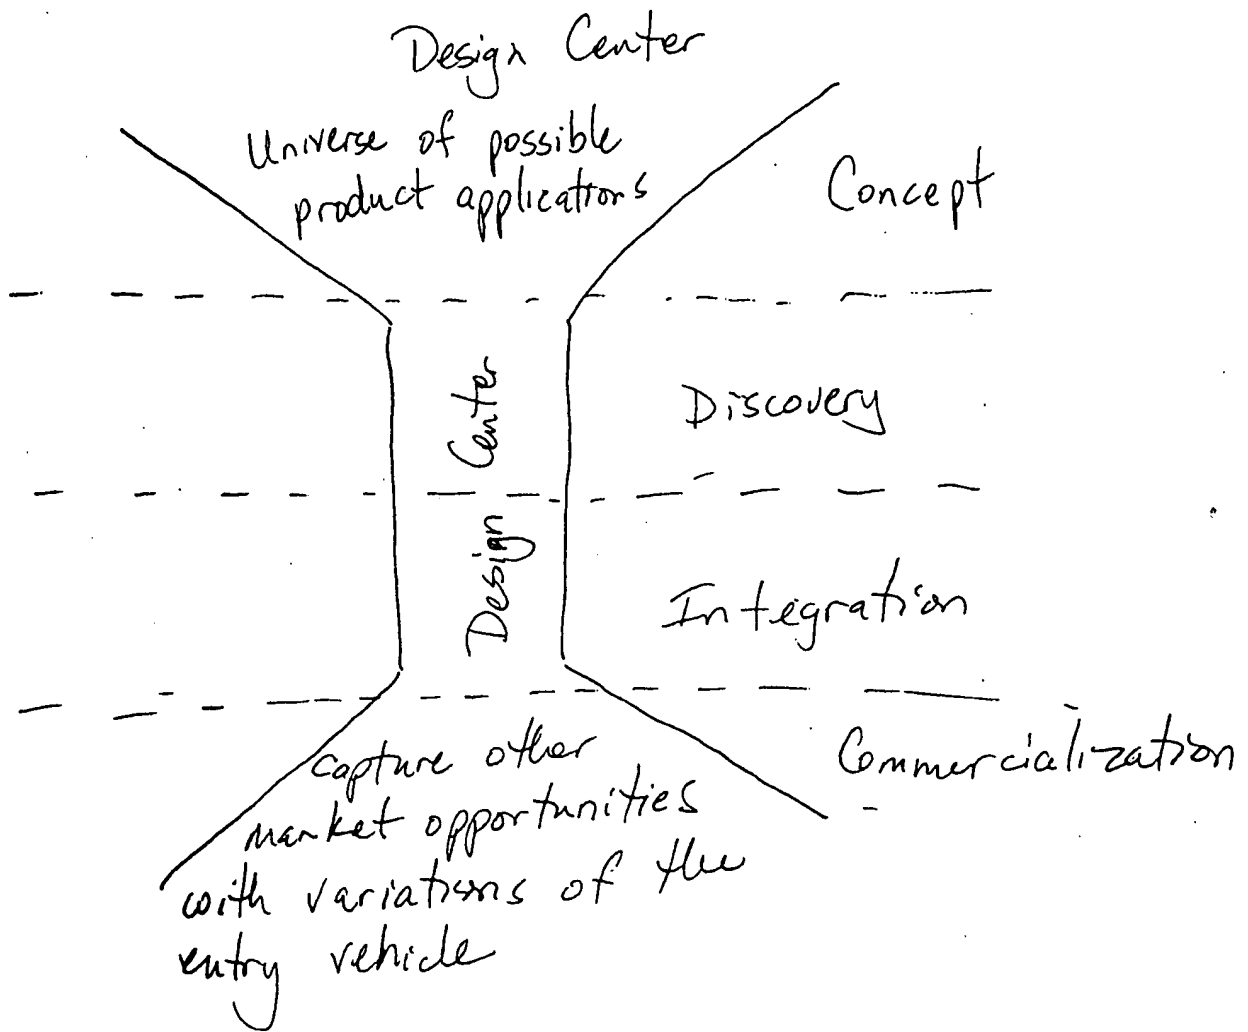 Design Center
Universe of possible
product applications
Concept
Discovery
Design Center
Integration
Commercialization
capture other
market opportunities
with variations of the
entry vehicle